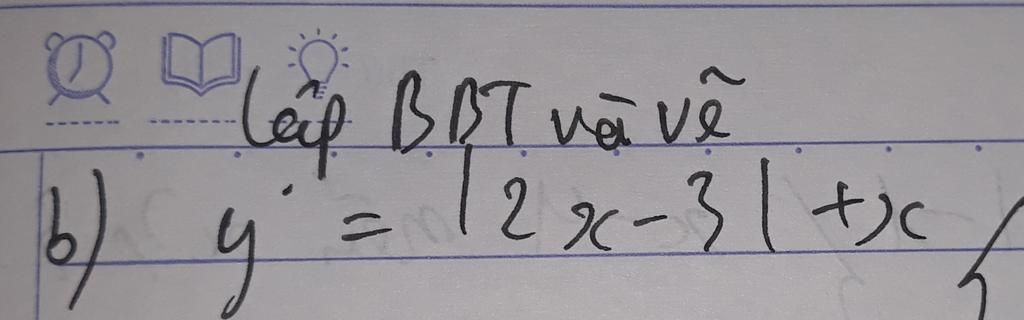 Lập BBT và vẽ
b) y = |2x - 3| + x